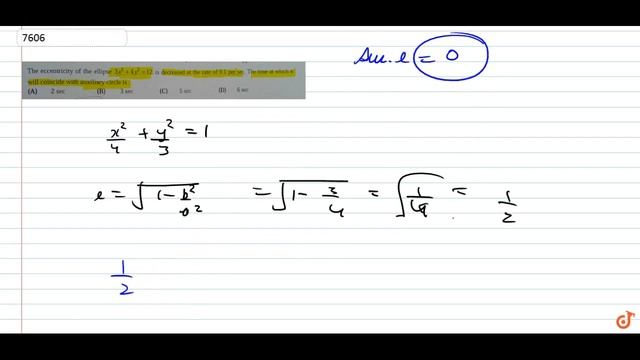 7606
Aux. e = 0
The eccentricity of the ellipse 3x² + 4y² = 12 is decreased at the rate of 0.1 per sec. The time at which it
will coincide with auxiliary circle is
(A) 2 sec (B) 3 sec (C) 5 sec (D) 6 sec
x²/4 + y²/3 = 1
e = √(1 - b²/a²) = √(1 - 3/4) = √(1/4) = 1/2
1/2